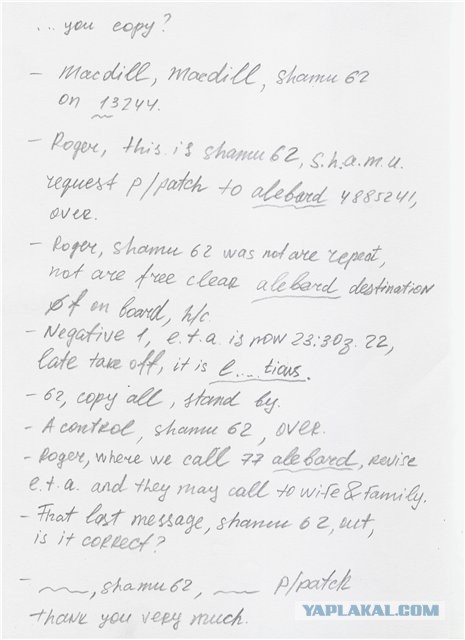 ... you copy?
- Macdill, Macdill, shamu 62
on 13244.
- Roger, this is shamu 62, s.h.a.m.u.
request p/patch to alebard 4885241,
over.
- Roger, shamu 62 was not are repeat,
not are free clear alebard destination
of on board, h/c.
- Negative 1, e.t.a. is now 23:30z. 22,
late take off, it is l....tious.
- 62, copy all, stand by.
- A control, shamu 62, over.
- Roger, where we call 77 alebard, revise
e.t.a. and they may call to wife & family.
- That last message, shamu 62, out,
is it correct?
- , shamu 62, p/patch
thank you very much.
YAPLAKAL.COM